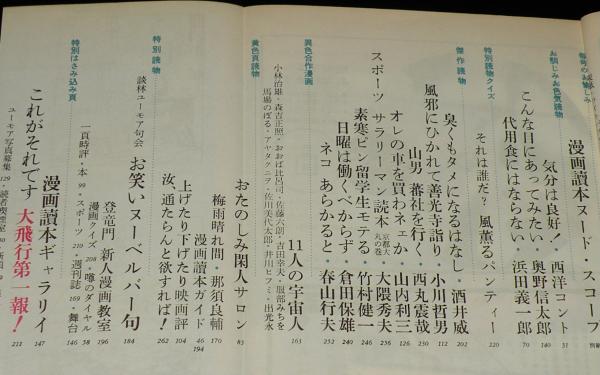 毎号のお楽しみ
漫画讀本ヌード・スコープ
お馴じみお色気読物
気分は良好!・西洋コント 51
こんな日にあってみたい・奥野信太郎 140
代用食にはならない・浜田義一郎 70
特別読物クイズ
それは誰だ? 風薫るパンティー 220
傑作読物
臭くもタメになるはなし・酒井威 202
風邪にひかれて善光寺詣り・小川哲男 112
山男 蕃社を行く・西丸震哉 230
オレの車を買わネェか・山内利三 126
スポーツ サラリーマン読本 京都大丸の巻・大隈秀夫 236
素寒ピン留学生モテる・竹村健一 66
日曜は働くべからず・倉田保雄 240
ネコ あらかると・春山行夫 232
異色合作漫画
11人の宇宙人 163
小林治雄・森吉正照・おおば比呂司・佐藤六朗・吉田幸夫・服部みちを
馬場のぼる・アヤタクニヲ・佐川美代太郎・井月ヒフミ・出光永
黄色頁読物
おたのしみ閑人サロン 83
梅雨晴れ間・那須良輔 170
漫画讀本ガイド 46 194
上げたり下げたり映画評 104
汝、通たらんと欲すれば! 262
特別読物
談林ユーモア句会 お笑いヌーベルバー句 184
特別はさみ込み頁
登竜門 新人漫画教室 196
漫画クイズ 208・噂のダイヤル 58
一頁時評・本 99・スポーツ 210・週刊誌 169・舞台 146
漫画讀本ギャラリイ 147
これがそれです 大飛行第一報! 211
ユーモア写真募集 129・読者喫煙室